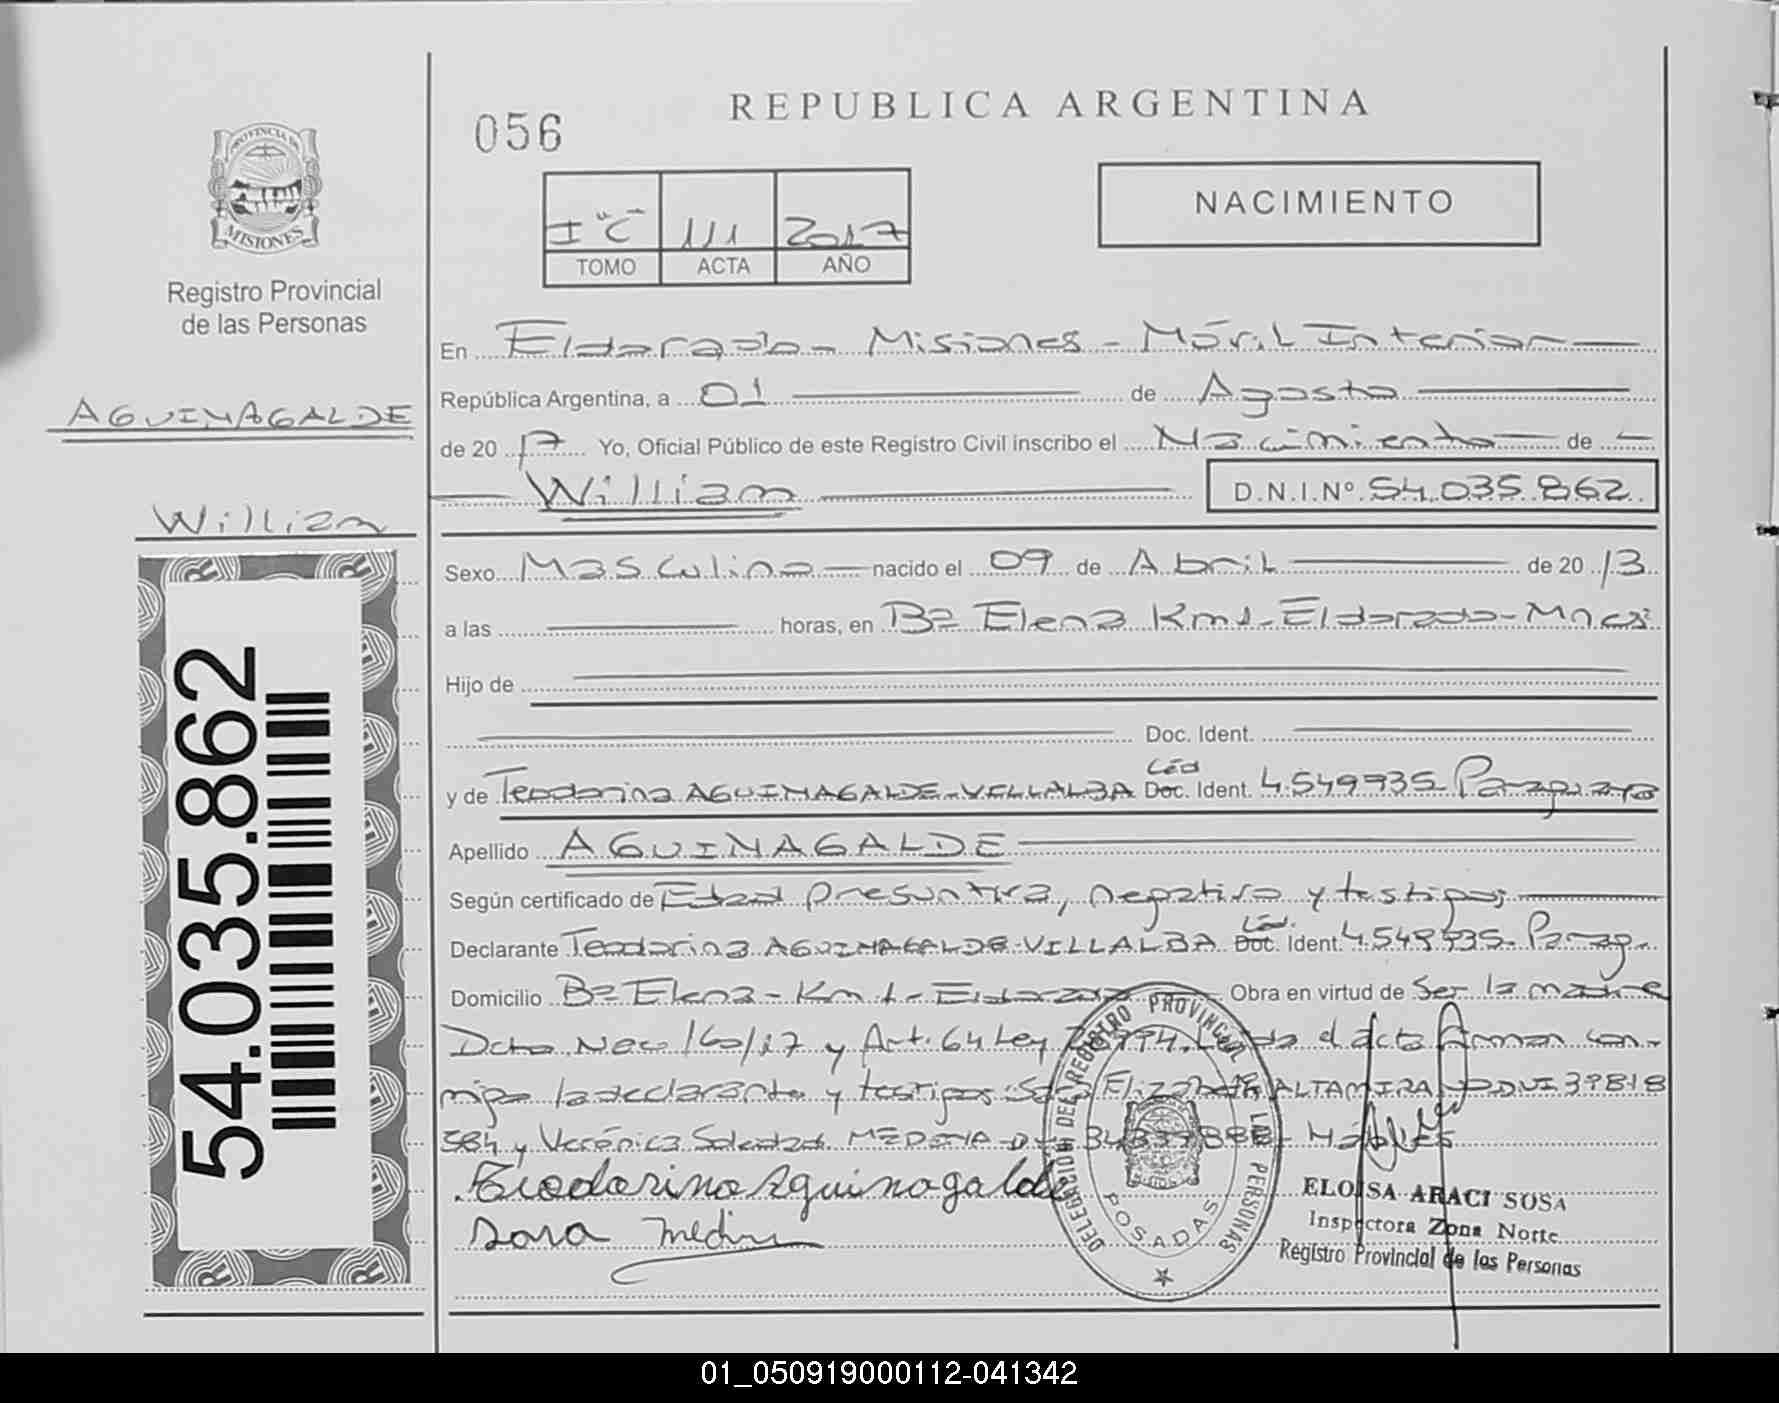 REPUBLICA ARGENTINA
056
NACIMIENTO
PROVINCIA DE
MISIONES
Registro Provincial
de las Personas
I "C" 111 2017
TOMO ACTA AÑO
AGUINAGALDE
Willian
54.035.862
En Eldorado - Misiones - Móvil Interior
República Argentina, a 01 de Agosto
de 2017 Yo, Oficial Público de este Registro Civil inscribo el Nacimiento de
Willian D.N.I.Nº 54.035.862
Sexo Masculino nacido el 09 de Abril de 2013
a las horas, en Bº Elena Km 1 - Eldorado - Mnes
Hijo de
Doc. Ident.
y de Teodorina AGUINAGALDE - VILLALBA Céd Doc. Ident. 4.549.935 Paraguaya
Apellido AGUINAGALDE
Según certificado de Edad presuntiva, negativo y testigos
Declarante Teodorina AGUINAGALDE - VILLALBA Céd. Doc. Ident. 4.549.935 Parag.
Domicilio Bº Elena - Km 1 - Eldorado Obra en virtud de Ser la madre
Dcto. Nac 160/17 y Art. 64 Ley el acta firman con-
migo la declarante y testigos Elizabeth ALTAMIRA DNI 39818
384 y Verónica Soledad MEDINA
Teodorina Aguinagalde
Medin
DELEGACION DEL REGISTRO PROVINCIAL DE LAS PERSONAS
POSADAS
ELOISA ARACI SOSA
Inspectora Zona Norte
Registro Provincial de las Personas
01_050919000112-041342